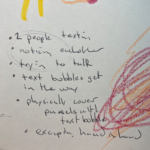 • 2 people texting
• not in eachother
• tryin to talk
• text bubbles get
in the way
• physically cover
panels with
text bubbles
• except hand in hand